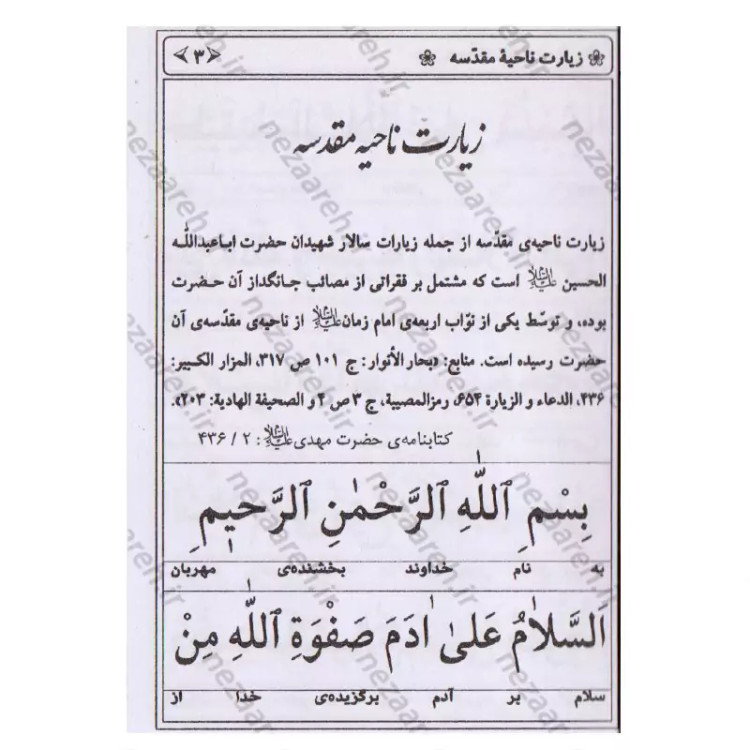 زیارت ناحیهٔ مقدّسه
﴿۳﴾
زیارت ناحیه مقدسه
زیارت ناحیه‌ی مقدّسه از جمله زیارات سالار شهیدان حضرت اباعبداللّه
الحسین علیه‌السلام است که مشتمل بر فقراتی از مصائب جانگداز آن حضرت
بوده، و توسّط یکی از نوّاب اربعه‌ی امام زمان علیه‌السلام از ناحیه‌ی مقدّسه‌ی آن
حضرت رسیده است. منابع: «بحار الأنوار: ج ۱۰۱ ص ۳۱۷، المزار الکبیر:
۴۳۶، الدعاء و الزیارة ۶۵۴، رمزالمصیبة، ج ۳ ص ۴ و الصحیفة الهادیة: ۲۰۳».
کتابنامه‌ی حضرت مهدی علیه‌السلام: ۲ / ۴۳۶
بِسْمِ ٱللّٰهِ ٱلرَّحْمٰنِ ٱلرَّحیٖمِ
به نام خداوند بخشنده‌ی مهربان
اَلسَّلاٰمُ عَلیٰ اٰدَمَ صَفْوَةِ ٱللّٰهِ مِنْ
سلام بر آدم برگزیده‌ی خدا از
nezaareh.ir